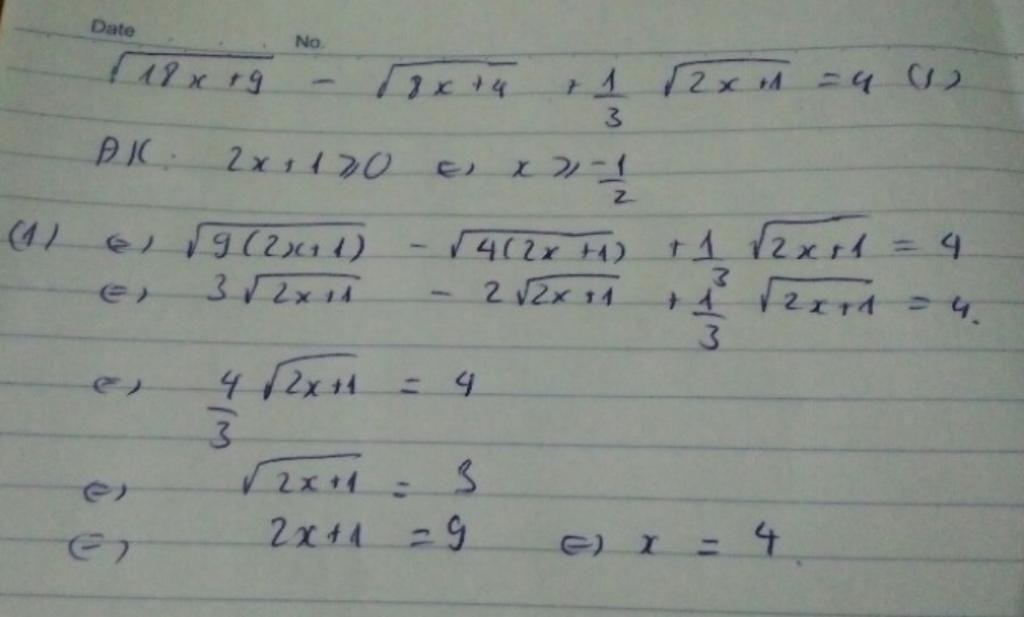 Date No.
√(18x+9) - √(8x+4) + 1/3 √(2x+1) = 4 (1)
ĐK: 2x+1 ⩾ 0 ⇔ x ⩾ -1/2
(1) ⇔ √(9(2x+1)) - √(4(2x+1)) + 1/3 √(2x+1) = 4
⇔ 3√(2x+1) - 2√(2x+1) + 1/3 √(2x+1) = 4.
⇔ 4/3 √(2x+1) = 4
⇔ √(2x+1) = 3
⇔ 2x+1 = 9 ⇔ x = 4.